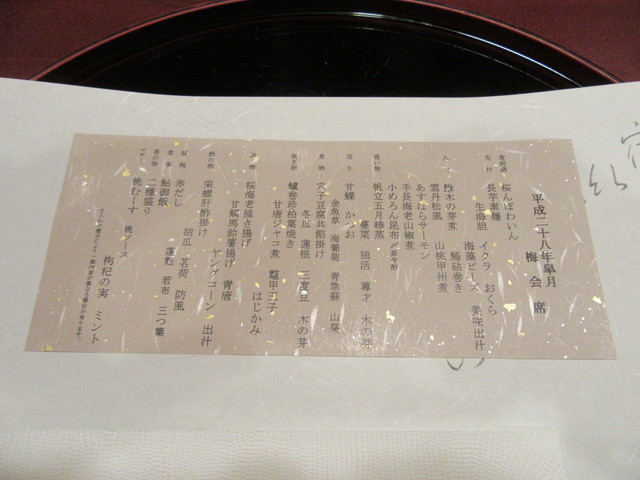 平成二十八年皐月
梅 会 席
食前酒 桜んぼわいん
先付 長芋葉麺 イクラ おくら
生海胆 海藻ビーズ 美味出汁
八寸 木の芽煮 鰻砧巻き
雲丹松風 山桃甲州煮
あすぱらサーモン
手長海老山椒煮
小めろん昆布〆黄身酢
吸い物 帆立五月糝蒸
蔓菜 独活 蓴才 木の芽
造り 甘鰈 かつお
金魚草 海葡萄 青紫蘇 山葵
煮物 穴子豆腐共餡掛け
冬瓜 蓮根 三度豆 木の芽
焼き物 鱸巻珍柏葉焼き
甘唐ジャコ煮 鼈甲玉子
はじかみ
桜海老掻き揚げ
甘鯛馬鈴薯揚げ 青唐
酢の物 栄螺肝酢掛け
ヤングコーン 出汁
胡瓜 茗荷 防風
留椀 赤だし
蓮麩 若布 三つ葉
食事 鮎御飯
香の物 二種盛り
桃むーす 桃ソース
枸杞の実 ミント